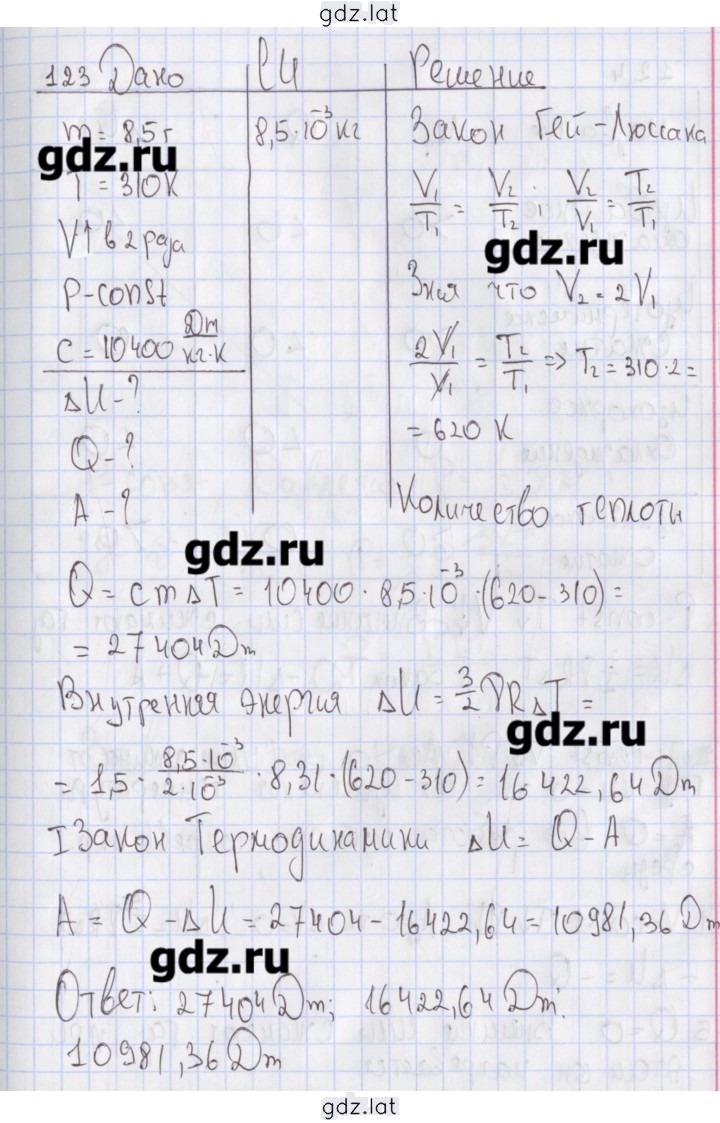 gdz.lat
123 Дано
СИ
Решение
m = 8,5 г
8,5·10⁻³ кг
Закон Гей-Люссака
gdz.ru
T = 310 K
V₁/T₁ = V₂/T₂; V₂/V₁ = T₂/T₁
V↑ в 2 раза
gdz.ru
P-const
Зная что V₂ = 2V₁
c = 10400 Дж/кг·К
2V₁/V₁ = T₂/T₁ => T₂ = 310·2 =
ΔU - ?
= 620 K
Q - ?
A - ?
Количество теплоты
gdz.ru
Q = cmΔT = 10400 · 8,5·10⁻³ · (620-310) =
= 27404 Дж
Внутренняя энергия ΔU = 3/2 νRΔT =
gdz.ru
= 1,5 · 8,5·10⁻³/2·10⁻³ · 8,31 · (620-310) = 16422,64 Дж
I Закон Термодинамики ΔU = Q - A
A = Q - ΔU = 27404 - 16422,64 = 10981,36 Дж
gdz.ru
Ответ: 27404 Дж; 16422,64 Дж;
10981,36 Дж
gdz.lat